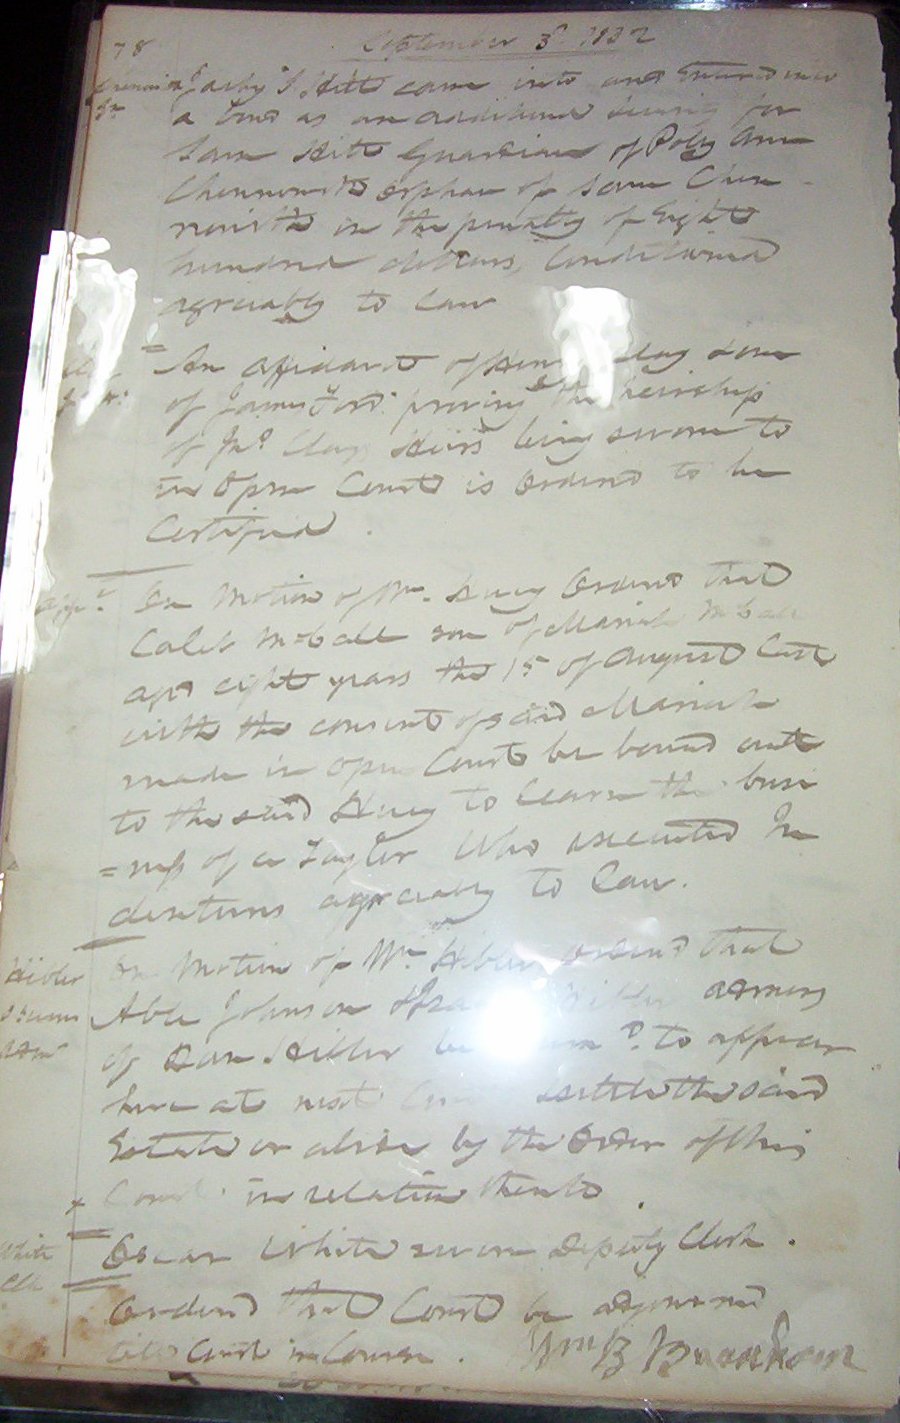 78
September 3d 1832
Hitt came into and Entered into
a bond as an additional Security for
Sam Hitt Guardian of Polly Ann
Chennowith orphan of Sam Chen
nowith in the penalty of Eight
hundred dollars, Conditioned
agreeably to law
An affidavit of Clay & one
of James Ford proving the heirship
of Jno Clays Heirs being sworn to
in Open Court is Ordered to be
Certified
On Motion of Wm. Huey Ordered that
Caleb McCall son of Mariah McCall
aged eight years the 15 of August last
with the consent of said Mariah
made in Open Court be bound out
to the said Huey to learn the busi
=ness of a Taylor Who executed In
dentures agreeably to Law.
Hibler
On Motion of Wm. Hibler Ordered that
Able Johnson Hibler admrs
of Dan Hibler be to appear
here at next Court settle the said
Estate or abide by the Order of this
Court in relation thereto.
White
Clk
Oscar White sworn Deputy Clerk.
Ordered that Court be adjourned
till Court in Course.
Wm B Branham